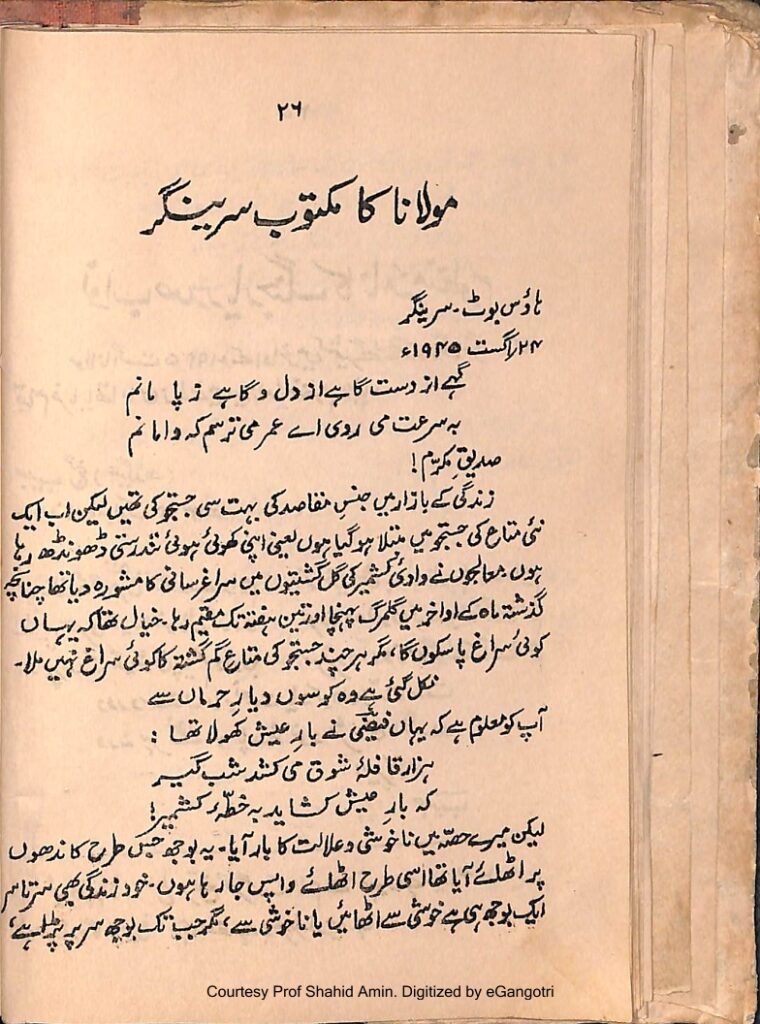 ۲۶
مولانا کا مکتوب سرینگر
ہاؤس بوٹ۔ سرینگر
۲۴ اگست ۱۹۴۵ء
گہے از دست گاہے از دل و گاہے ز پا مانم
بہ سرعت می روی اے عمر می ترسم کہ وا مانم
صدیقِ مکرّم!
زندگی کے بازار میں جنسِ مقاصد کی بہت سی جستجو کی تھیں لیکن اب ایک
نئی متاع کی جستجو میں مبتلا ہو گیا ہوں یعنی اپنی کھوئی ہوئی تندرستی ڈھونڈھ رہا
ہوں۔ معالجوں نے وادیٔ کشمیر کی گل گشتیوں میں سراغ رسانی کا مشورہ دیا تھا چنانچہ
گذشتہ ماہ کے اواخر میں گلمرگ پہنچا اور تین ہفتہ تک مقیم رہا۔ خیال تھا کہ یہاں
کوئی سراغ پا سکوں گا، مگر ہر چند جستجو کی متاعِ گم گشتہ کا کوئی سراغ نہیں ملا۔
نکل گئی ہے وہ کوسوں دیارِ حرماں سے
آپ کو معلوم ہے کہ یہاں فیضیؔ نے بارِ عیش کھولا تھا:
ہزار قافلۂ شوق می کشد شب گیر
کہ بارِ عیش کشاید بہ خطّۂ کشمیر!
لیکن میرے حصّہ میں ناخوشی و علالت کا بار آیا۔ یہ بوجھ جس طرح کاندھوں
پر اٹھائے آیا تھا اسی طرح اٹھائے واپس جا رہا ہوں۔ خود زندگی بھی سرتاسر
ایک بوجھ ہی ہے خوشی سے اٹھائیں یا ناخوشی سے، مگر جب تک بوجھ سر پر پڑا ہے،
Courtesy Prof Shahid Amin. Digitized by eGangotri